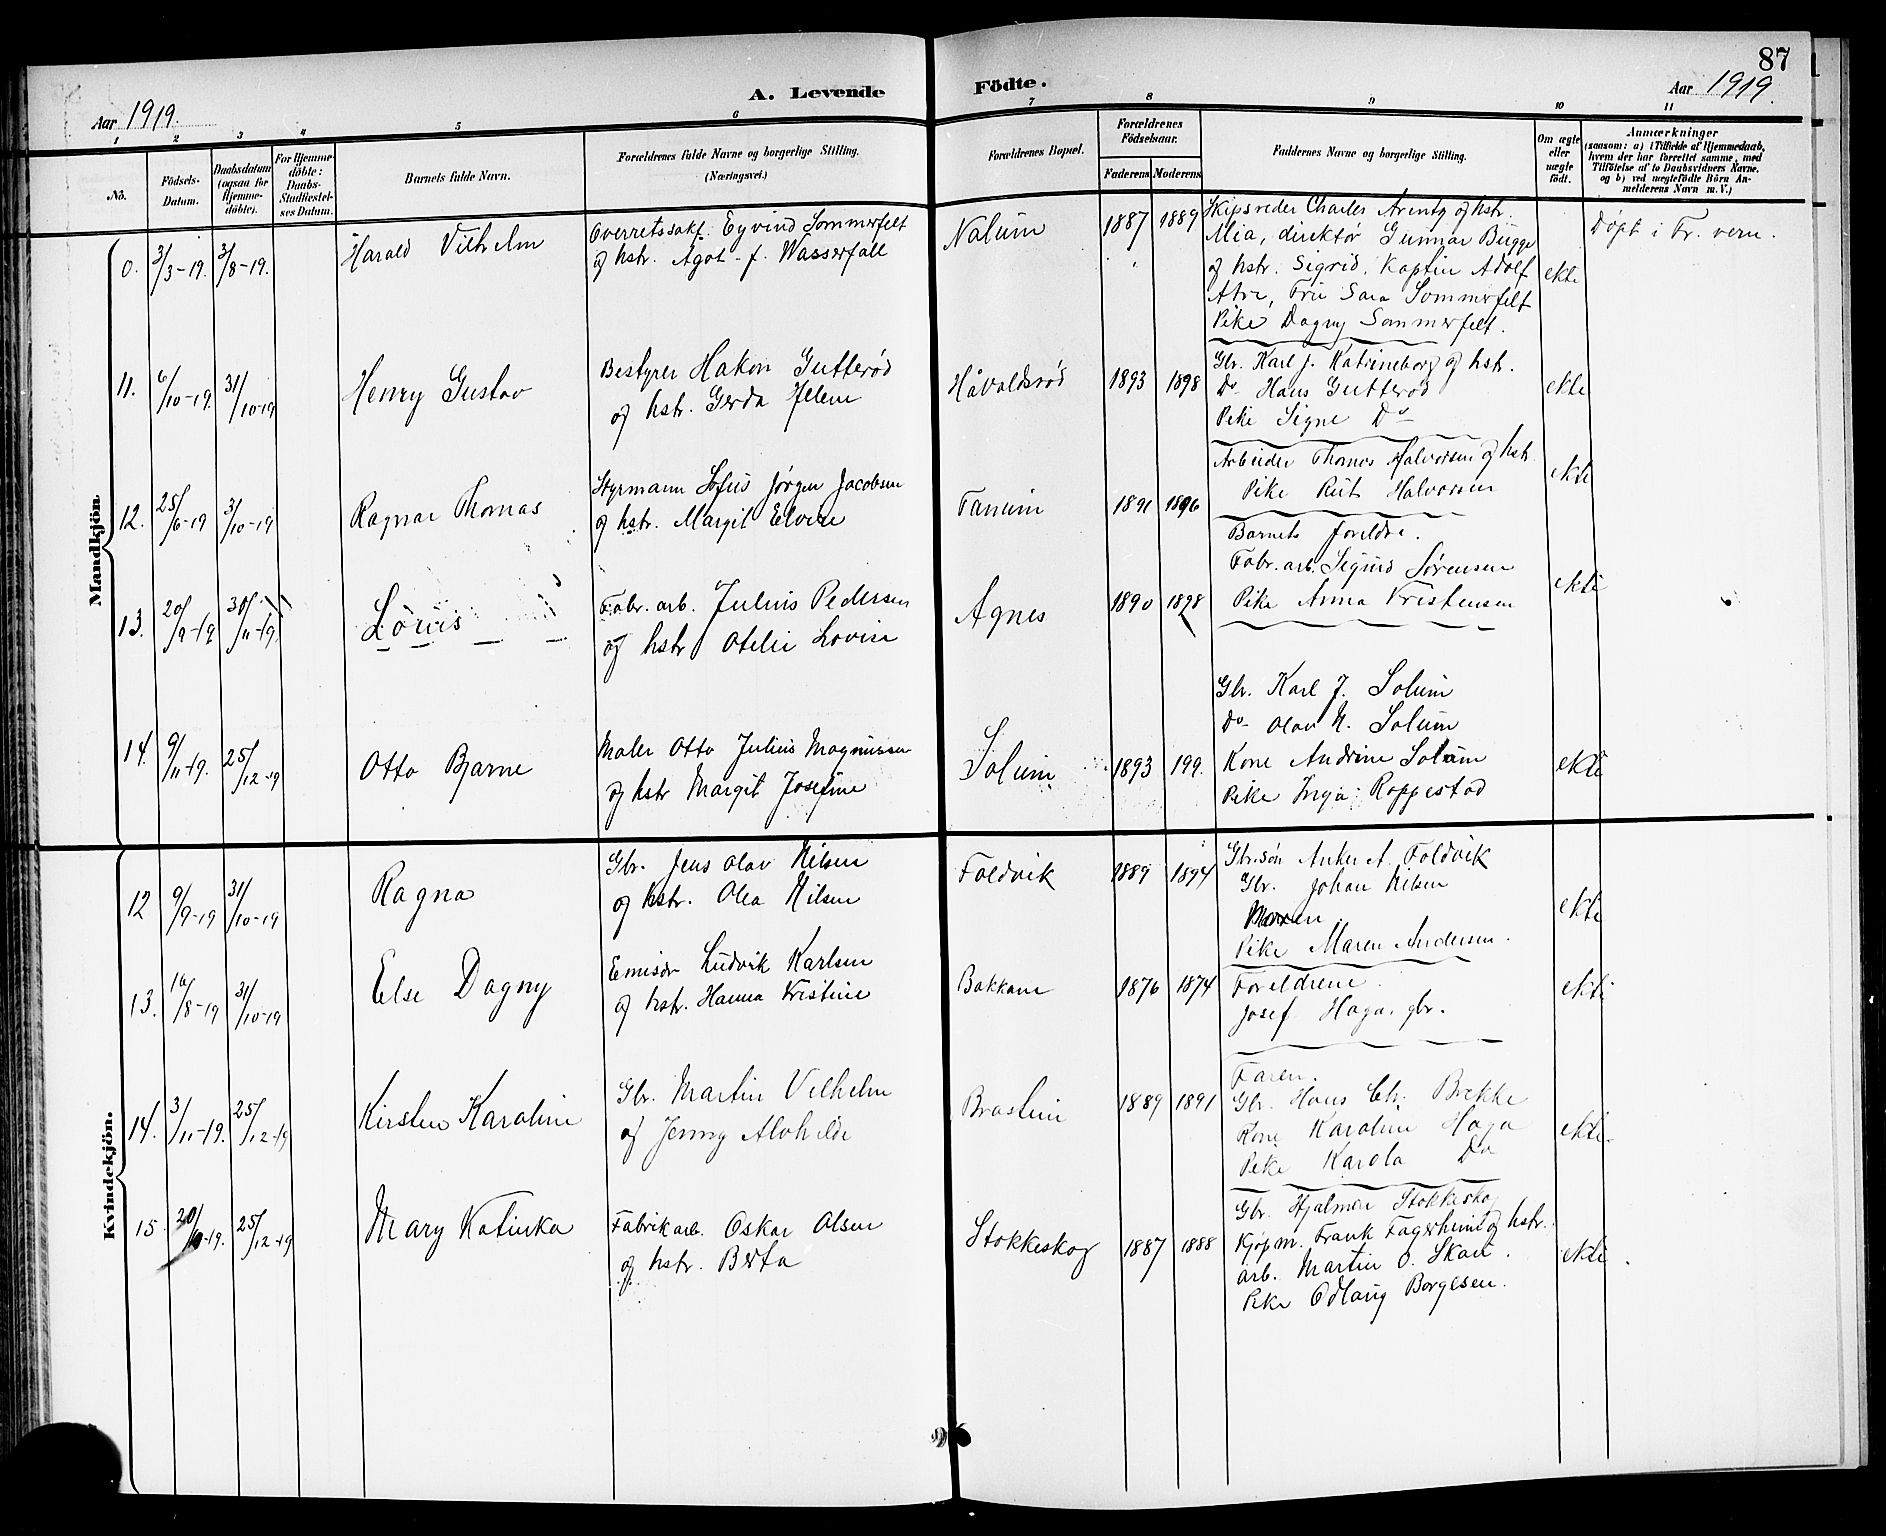 87
A. Levende Födte.
Aar 1919.
Aar 1919.
1 2 3 4 5 6 7 8 9 10 11
No.
Födsels-Datum.
Daabsdatum (ogsaa for Hjemme-döbte).
For Hjemme-döbte: Daabs-Stadfæstel-ses Datum.
Barnets fulde Navn.
Forældrenes fulde Navne og borgerlige Stilling.
(Næringsvei.)
Forældrenes Bopæl.
Forældrenes Födselsaar.
Faderens. Moderens.
Faddernes Navne og borgerlige Stilling.
Om ægte eller uægte födt.
Anmærkninger
(saasom: a) i Tilfælde af Hjemmedaab, hvem der har forrettet samme, med Tilföielse af to Daabsvidners Navne. og b) ved uægtefödte Börn An-melderens Navn m. V.)
Mandkjön.
0. 3/3-19. 3/8-19.
Harald Vilhelm
Overretssakf. Eyvind Sommerfelt
og hstr. Agot f. Wasserfall
Nalum
1887 1889
Skipsreder Charles Arentz og hstr.
Mia, direktør Gunnar Bugge
og hstr. Sigrid, Kaptin Adolf
Fru Sara Sommerfelt
Pike Dagny Sommerfelt.
ekte
Døpt i Fr. vern.
11. 6/10-19. 31/10-19
Henry Gustav
Bestyrer Hakon Gutterød
og hstr. Gerda Helene
Håvaldsrød
1893 1898
Gbr. Karl J. Katrineborg og hstr.
Do Hans Gutterød
Pike Signe Do
ekte
12. 25/6-19 3/10-19
Ragnar Thomas
Styrmann Sofus Jørgen Jacobsen
og hstr. Margit Elvire
Tanum
1891 1896
Arbeider Thomas Halvorsen og hstr
Pike Rut Halvorsen
ekte
13. 20/9-19 30/11-19
Louis
Fabr. arb. Julius Pedersen
og hstr Otelie Lovise
Agnes
1890 1898
Barnets foreldre.
Fabr. arb. Sigurd Sørensen
Pike Anna Kristensen
ekte
14. 9/11-19. 25/12-19
Otto Bjarne
Maler Otto Julius Magnussen
og hstr Margit Josefine
Solum
1893 199.
Gbr. Karl J. Solum
Do Olav N. Solum
Kone Andrine Solum
Pike Inga Roppestad
ekte
Kvindekjön.
12 9/9-19 31/10-19
Ragna
Gbr. Jens Olav Nilsen
og hstr. Olea Nilsen
Foldvik
1889 1894
Gbr.søn Anker A. Foldvik
Gbr. Johan Nilsen
Moren
Pike Maren Andersen.
ekte
13. 16/8-19 31/10-19
Else Dagny
Emisær Ludvik Karlsen
og hstr. Hanna Kristine
Bakkane
1876 1874
Foreldrene
Josef Haga, gbr.
ekte
14. 3/11-19. 25/12-19
Kirsten Karoline
Gbr. Martin Vilhelm
og Jenny Alvhilde
Brastein
1889 1891
Faren.
Gbr. Hans Chr. Brekke
Kone Karoline Haga
Pike Karola Do
ekte
15 20/10-19. 25/12-19
Mary Katinka
Fabrikarb. Oskar Olsen
og hstr. Berta
Stokkeskog
1887 1888
Gbr. Hjalmar Stokkeskog
Kjøpm. Frank Fagerheim og hstr.
arb. Martin O. Skau.
Pike Odlaug Borgesen.
ekte